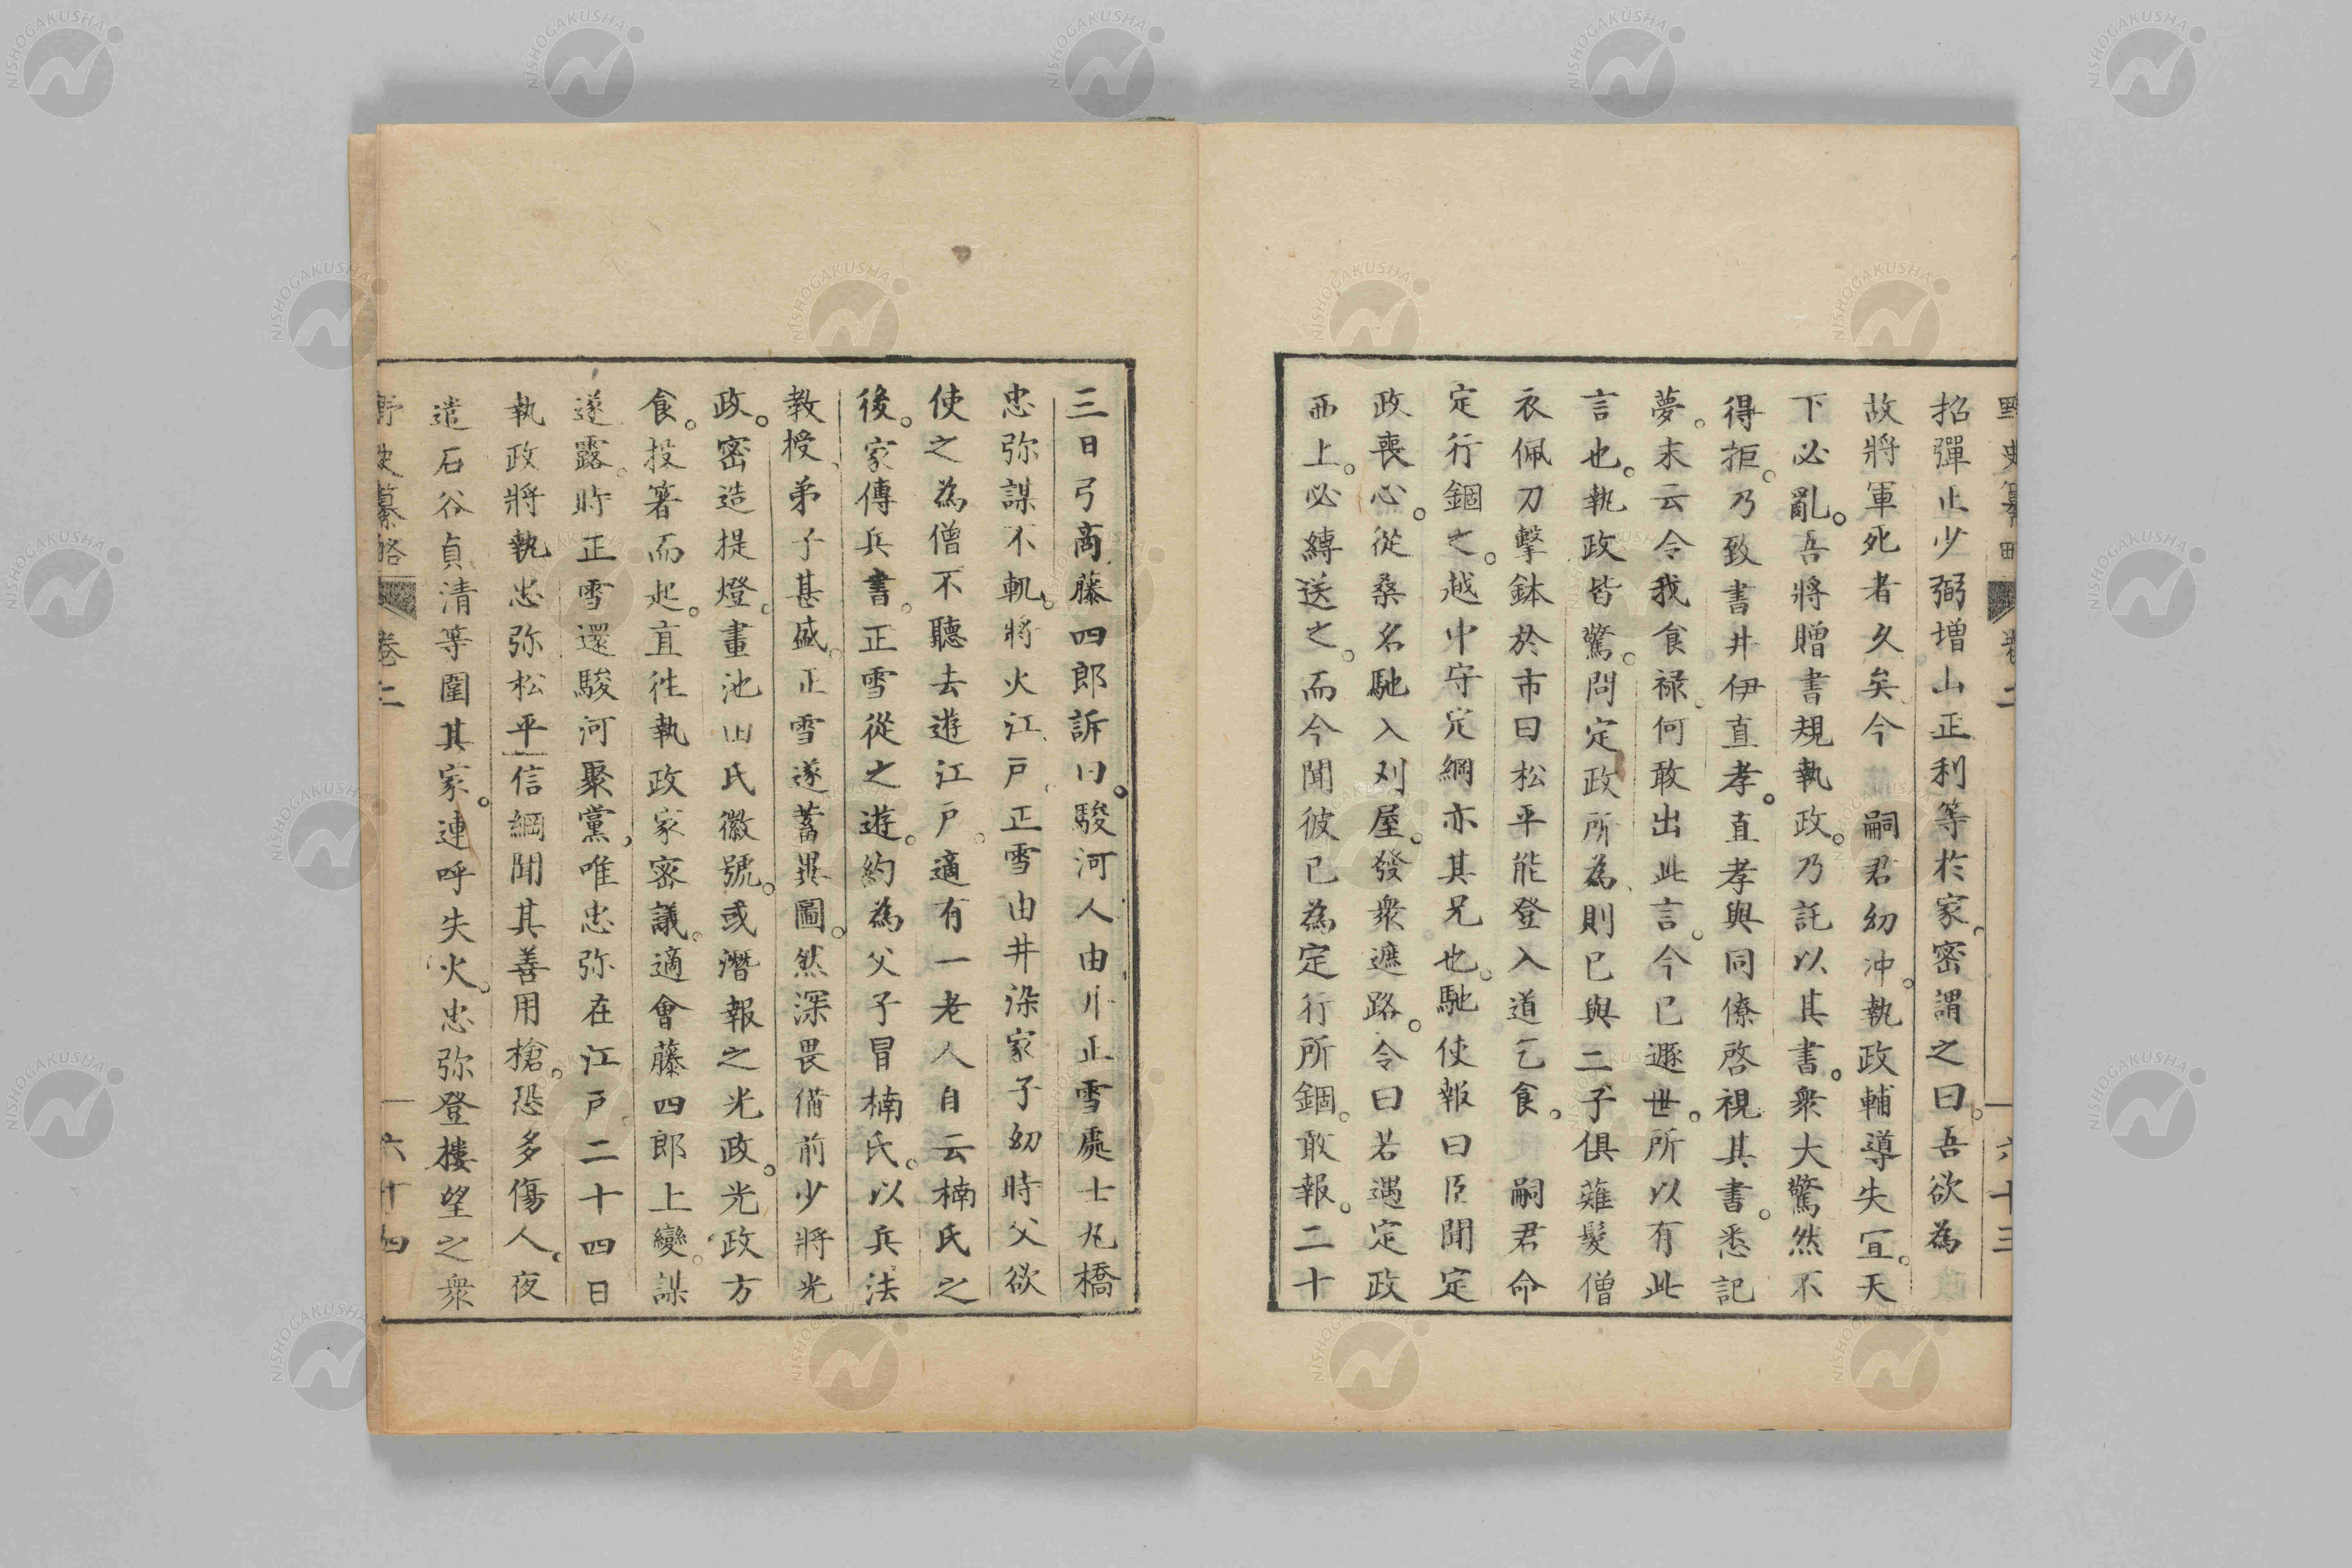 招彈止少弼増山正利等於家。密謂之曰。吾欲為
故將軍死者久矣今 嗣君幼冲。執政輔導失宜。天
下必亂。吾將贈書規執政。乃託以其書。衆大驚然不
得拒。乃致書井伊直孝。直孝與同僚啓視其書。悉記
夢。末云令我食禄。何敢出此言。今已遯世。所以有此
言也。執政皆驚。問定政所為、則已與二子俱薙髮僧
衣佩刀擊鉢於市曰松平能登入道乞食。 嗣君命
定行錮之。越中守定綱亦其兄也。馳使報曰臣聞定
政喪心。從桑名馳入刈屋。發衆遮路。令曰若遇定政
西上。必縛送之。而今聞彼已為定行所錮。敢報。二十
三日弓商藤四郎訴曰。駿河人由井正雪處士丸橋
忠弥謀不軌。將火江戸。正雪由井染家子幼時父欲
使之為僧不聽去遊江戸。適有一老人自云楠氏之
後。家傳兵書。正雪從之遊。約為父子冒楠氏。以兵法
教授、弟子甚盛。正雪遂蓄異圖。然深畏備前少將光
政。密造提燈。畫池田氏徽號。或潛報之光政。光政方
食。投箸而起。直往執政家密議。適會藤四郎上變。謀
遂露。時正雪還駿河聚黨、唯忠弥在江戸。二十四日
執政將執忠弥松平信綱聞其善用槍。恐多傷人。夜
遣石谷貞清等圍其家。連呼失火。忠弥登樓望之衆
野史纂略 卷二 六十三
野史纂略 卷二 六十四
NISHOGAKUSHA